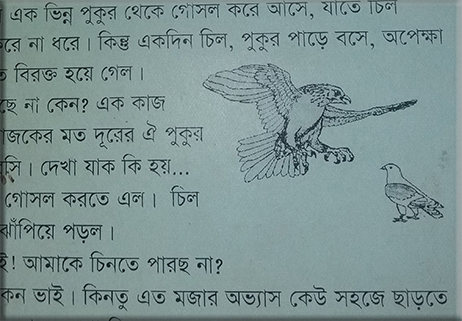 এক ভিন্ন পুকুর থেকে গোসল করে আসে, যাতে চিল
না ধরে। কিন্তু একদিন চিল, পুকুর পাড়ে বসে, অপেক্ষা
বিরক্ত হয়ে গেল।
না কেন? এক কাজ
মত দূরের ঐ পুকুর
দেখা যাক কি হয়...
গোসল করতে এল। চিল
ঝাঁপিয়ে পড়ল।
আমাকে চিনতে পারছ না?
ভাই। কিনতু এত মজার অভ্যাস কেউ সহজে ছাড়তে